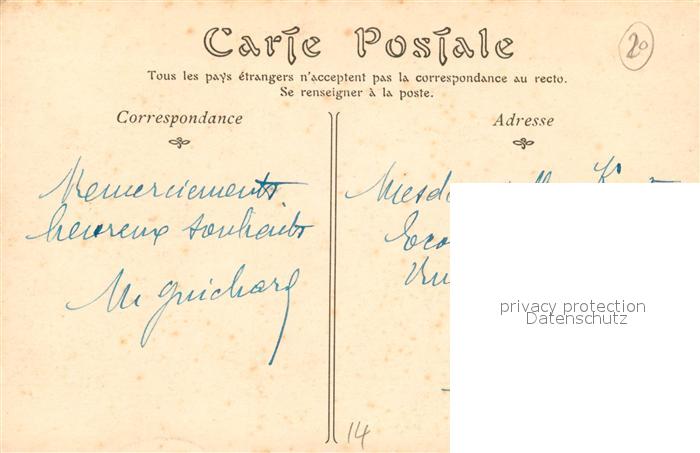 Carte Postale
20
Tous les pays étrangers n'acceptent pas la correspondance au recto.
Se renseigner à la poste.
Correspondance
Remerciements
heureux souhaits
M Guichard
Adresse
privacy protection
Datenschutz
14